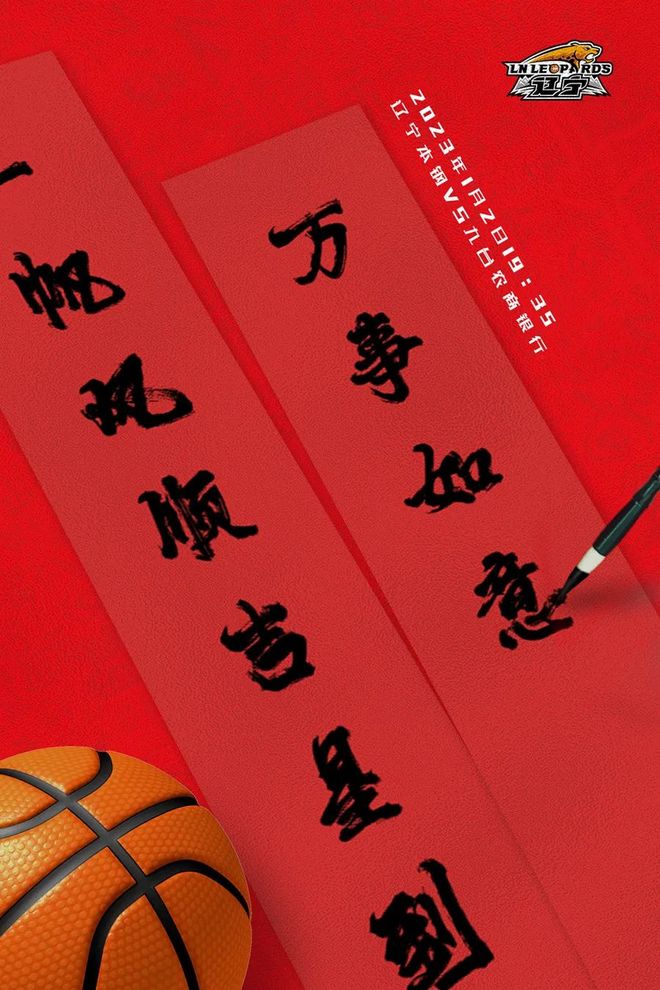 LN LEOPARDS
辽宁
2023年1月2日19:35
辽宁本钢VS九台农商银行
一帆风顺吉星到
万事如意